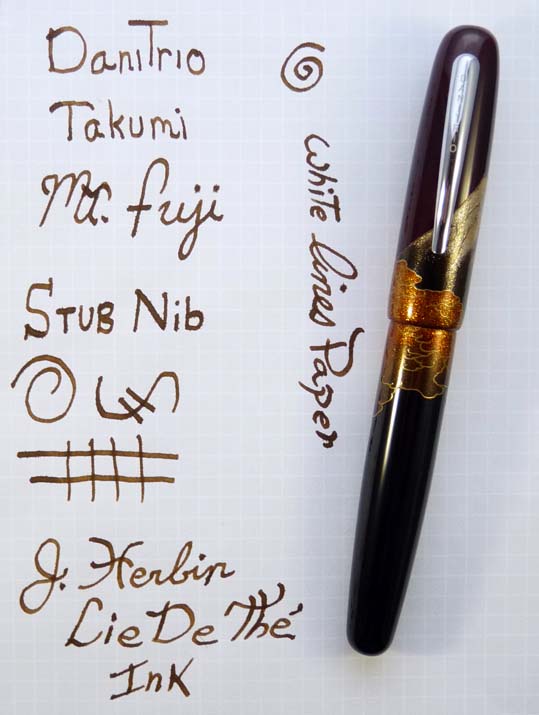 DaniTrio
Takumi
Mt. Fuji
Stub Nib
J. Herbin
Lie De Thé
Ink
White lines Paper
DANITRIO